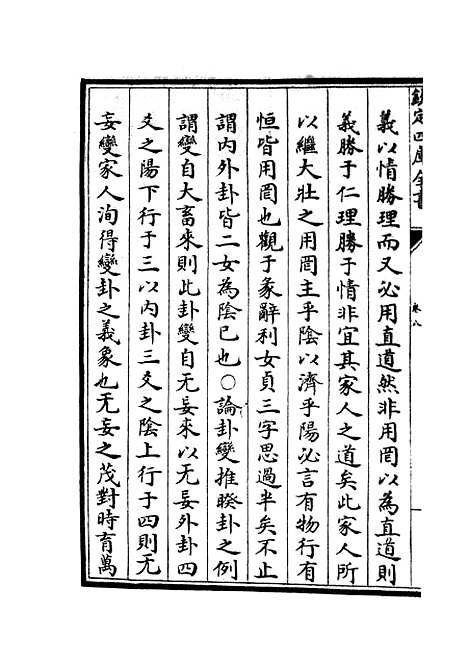 欽定四庫全書
卷八
義以情勝理而又必用直道然非用罔以為直道則
義勝于仁理勝于情非宜其家人之道矣此家人所
以繼大壯之用罔主乎陰以濟乎陽必言有物行有
恒皆用罔也觀于彖辭利女貞三字思過半矣不止
謂内外卦皆二女為陰已也○論卦變推睽卦之例
謂變自大畜來則此卦變自无妄來以无妄外卦四
爻之陽下行于三以内卦三爻之陰上行于四則无
妄變家人洵得變卦之義象也无妄之茂對時育萬